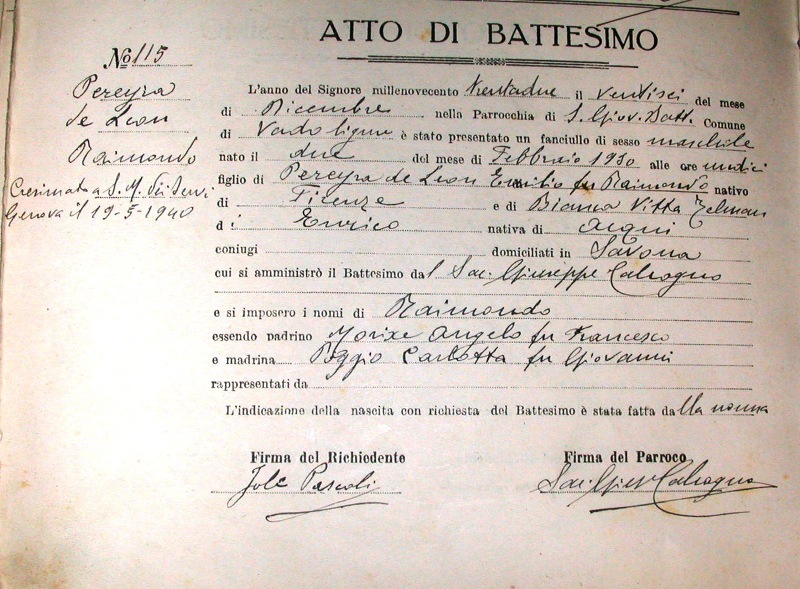 ATTO DI BATTESIMO
No 115
Pereyra
de Leon
Raimondo
Cresimato a S. M. dei Servi
Genova il 19-5-1940
L'anno del Signore millenovecento trentadue il ventisei del mese
di Dicembre nella Parrocchia di S. Giov. Batt. Comune
di Vado Ligure è stato presentato un fanciullo di sesso maschile
nato il due del mese di Febbraio 1930 alle ore undici
figlio di Pereyra de Leon Emilio fu Raimondo nativo
di Firenze e di Bianca Vitta Zelman
di Enrico nativa di Acqui
coniugi domiciliati in Savona
cui si amministrò il Battesimo dal Sac. Giuseppe Calcagno
e si imposero i nomi di Raimondo
essendo padrino Morixe Angelo fu Francesco
e madrina Poggio Carlotta fu Giovanni
rappresentati da
L'indicazione della nascita con richiesta del Battesimo è stata fatta dalla nonna
Firma del Richiedente
Firma del Parroco
Jole Pascoli
Sac. Gius. Calcagno